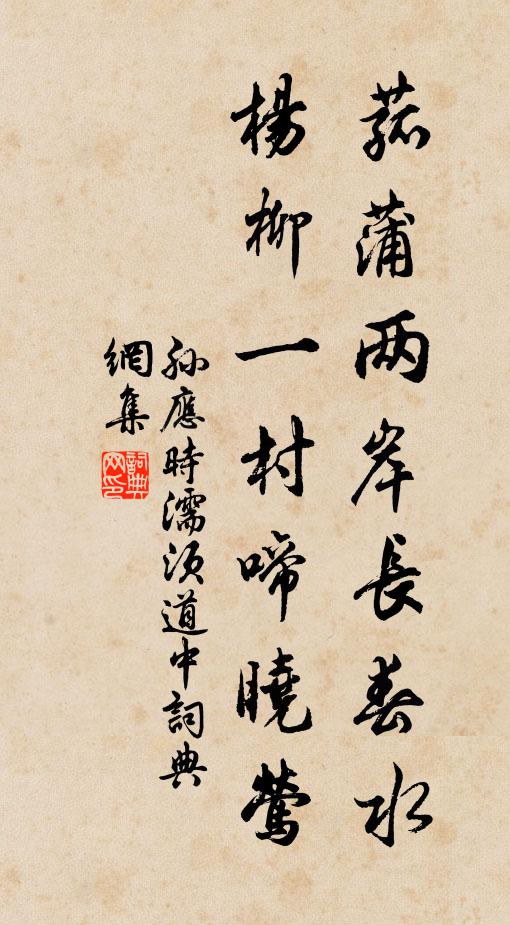 菰蒲两岸長春水
楊柳一村啼曉鶯
孙應時濡須道中詞典
網集
詞典網印